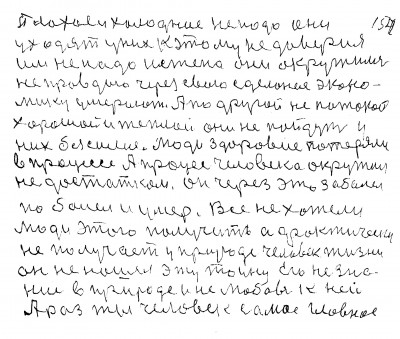 Плохое и холодное не надо они 159
уходят у них к этому недоверия
им не надо истена они окружили
неправдою через свого сделоное эконо-
мику умерают. А по другой не потокой
хорошой и теплой они не пойдут у
них безсилие. Люди здоровие потеряли
в процессе А процес человека окружил
недостатком. он через это забалел
по болел и умер. Все не хотели
люди этого получить а фактически
не получает у природе человек жизни
он не нашел эту тайну его не зна-
ние в природе и не любовь к ней
А раз ты человек самое главное